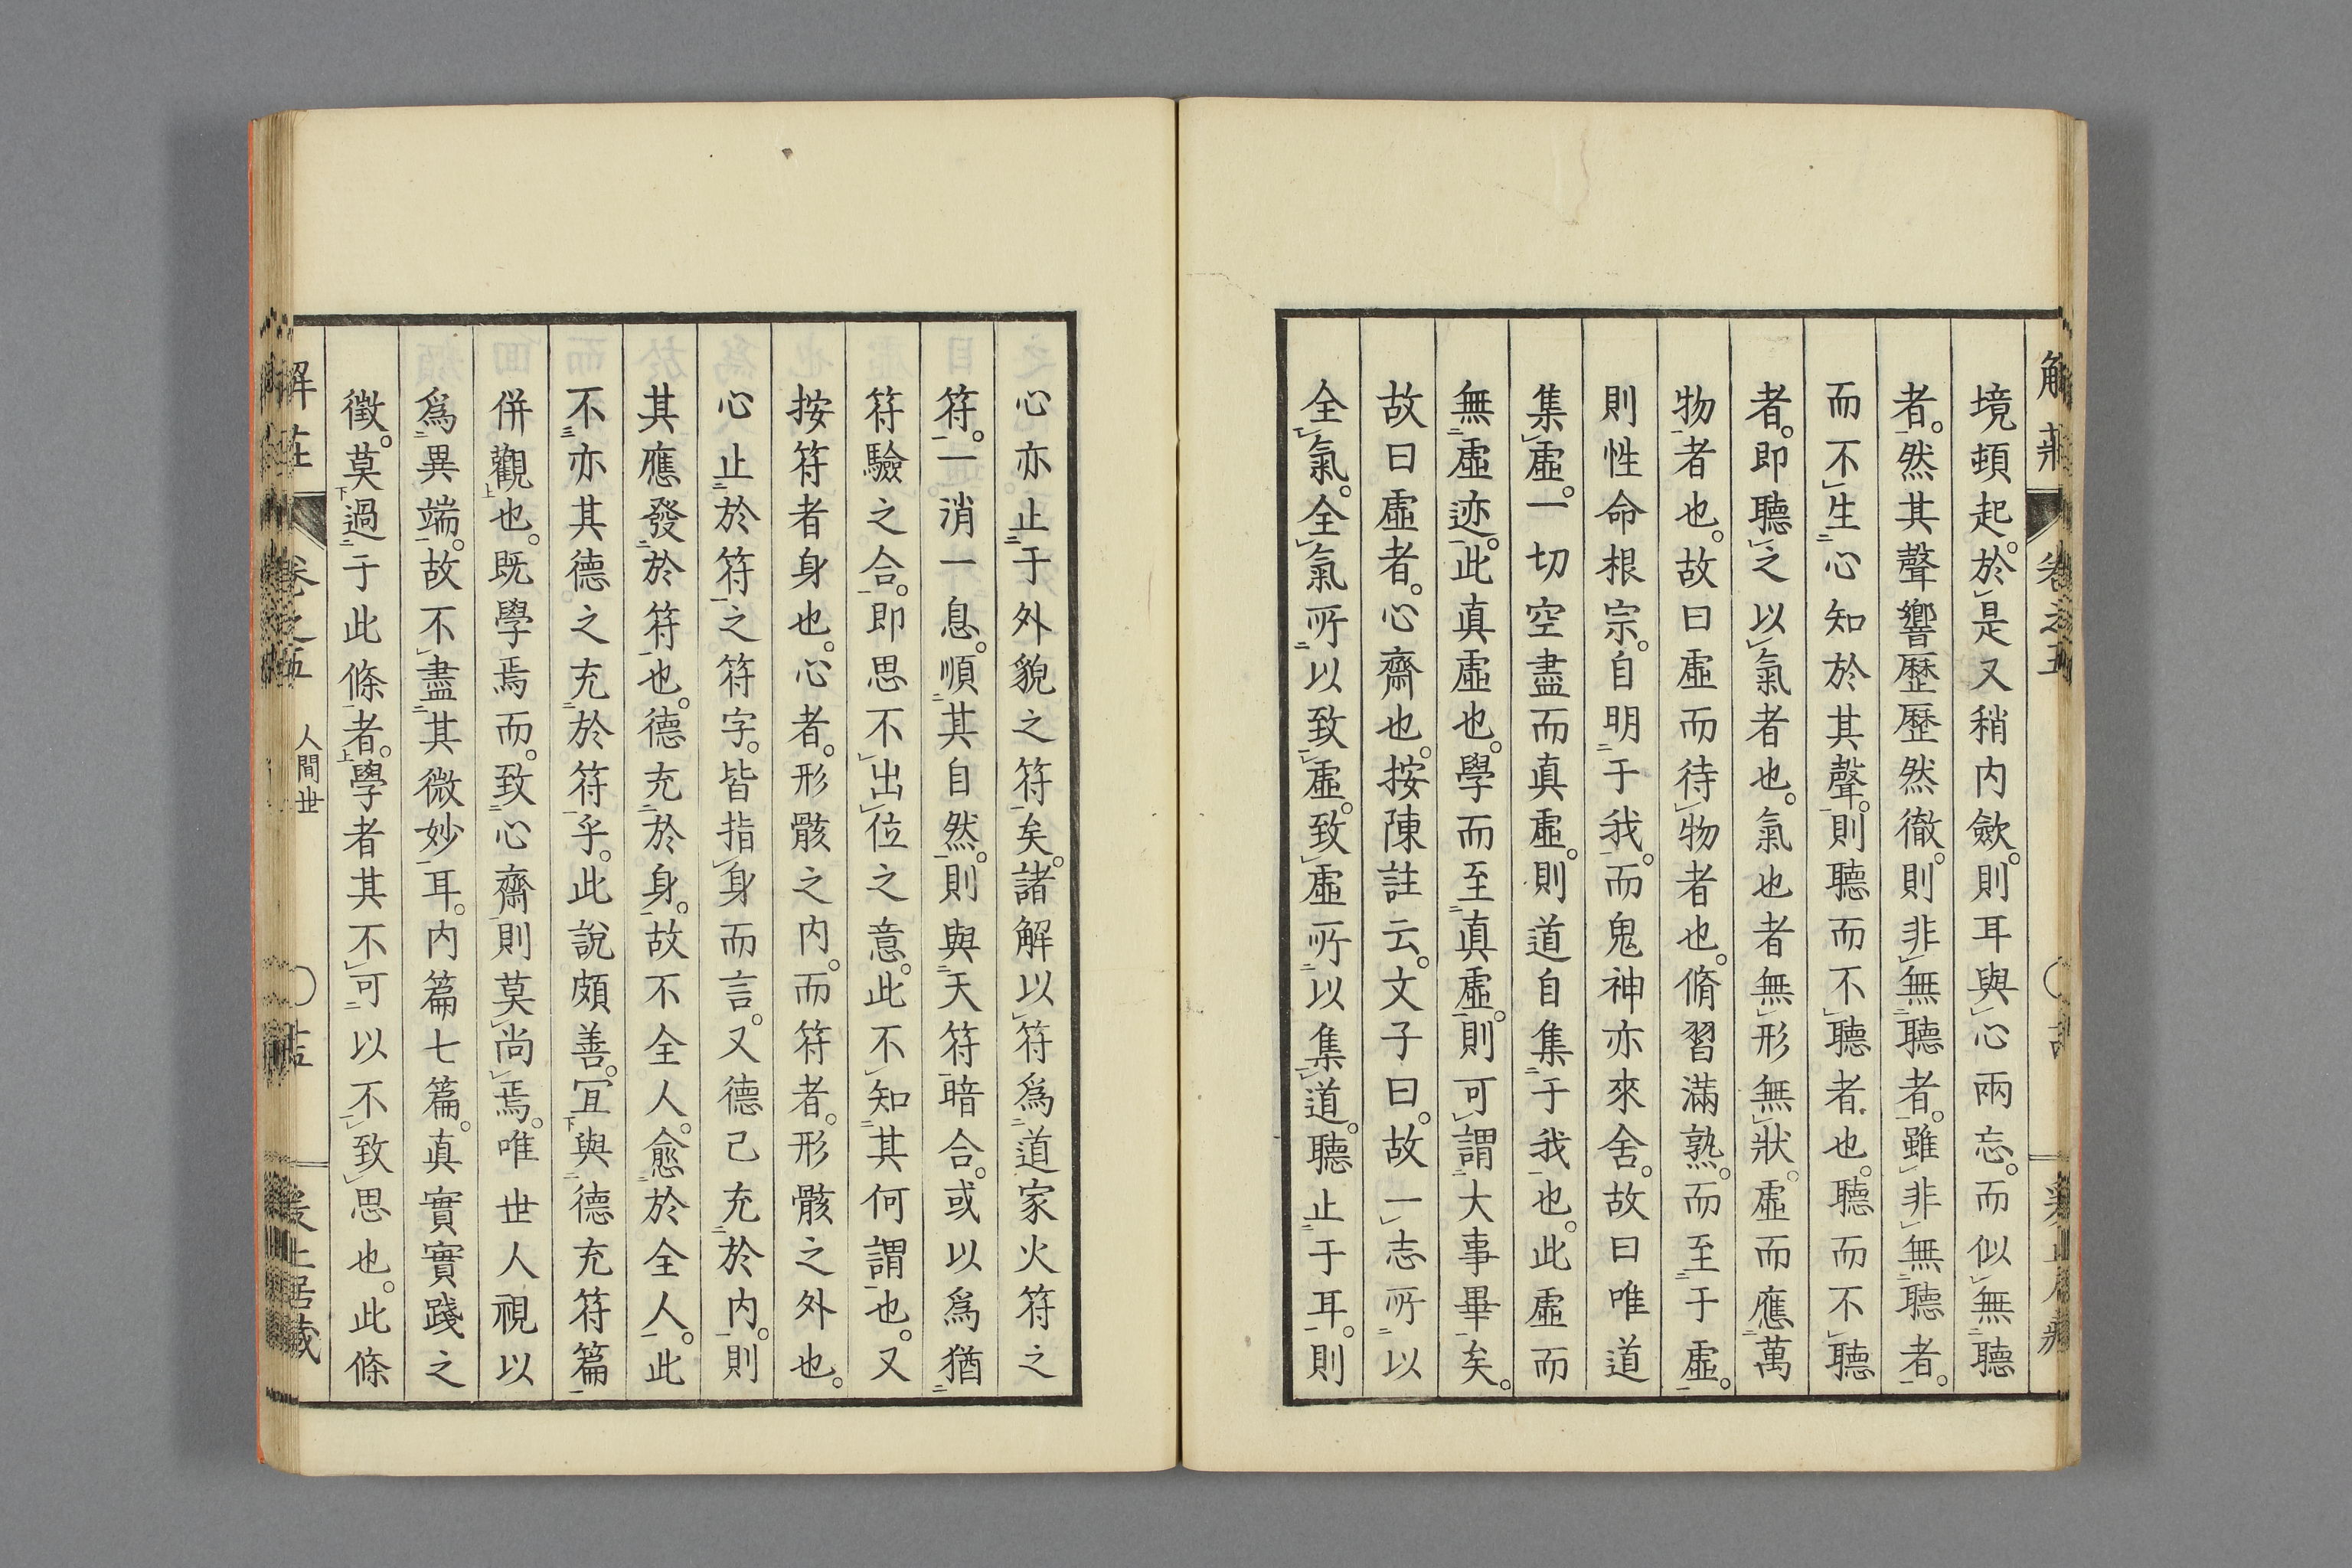 境頓起。於是又稍内歛。則耳與心兩忘。而似無聽
者。然其聲響歷歷然徹。則非無聽者。雖非無聽者。
而不生心知於其聲。則聽而不聽者也。聽而不聽
者。即聽之以氣者也。氣也者無形無狀。虛而應萬
物者也。故曰虛而待物者也。脩習滿熟。而至于虛。
則性命根宗。自明于我。而鬼神亦來舍。故曰唯道
集虛。一切空盡而真虛。則道自集于我也。此虛而
無虛迹。此真虛也。學而至真虛。則可謂大事畢矣。
故曰虛者。心齋也。按陳註云。文子曰。故一志所以
全氣。全氣所以致虛。致虛所以集道。聽止于耳。則
心亦止于外貌之符矣。諸解以符爲道家火符之
符。一消一息。順其自然。則與天符暗合。或以爲猶
符驗之合。即思不出位之意。此不知其何謂也。又
按符者身也。心者。形骸之内。而符者。形骸之外也。
心止於符之符字。皆指身而言。又德己充於内。則
其應發於符也。德充於身。故不全人。愈於全人。此
不亦其德之充於符乎。此說頗善。冝與德充符篇
併觀也。既學焉而。致心齋則莫尚焉。唯世人視以
爲異端。故不盡其微妙耳。内篇七篇。真實實踐之
徵。莫過于此條者。學者其不可以不致思也。此條
人間世